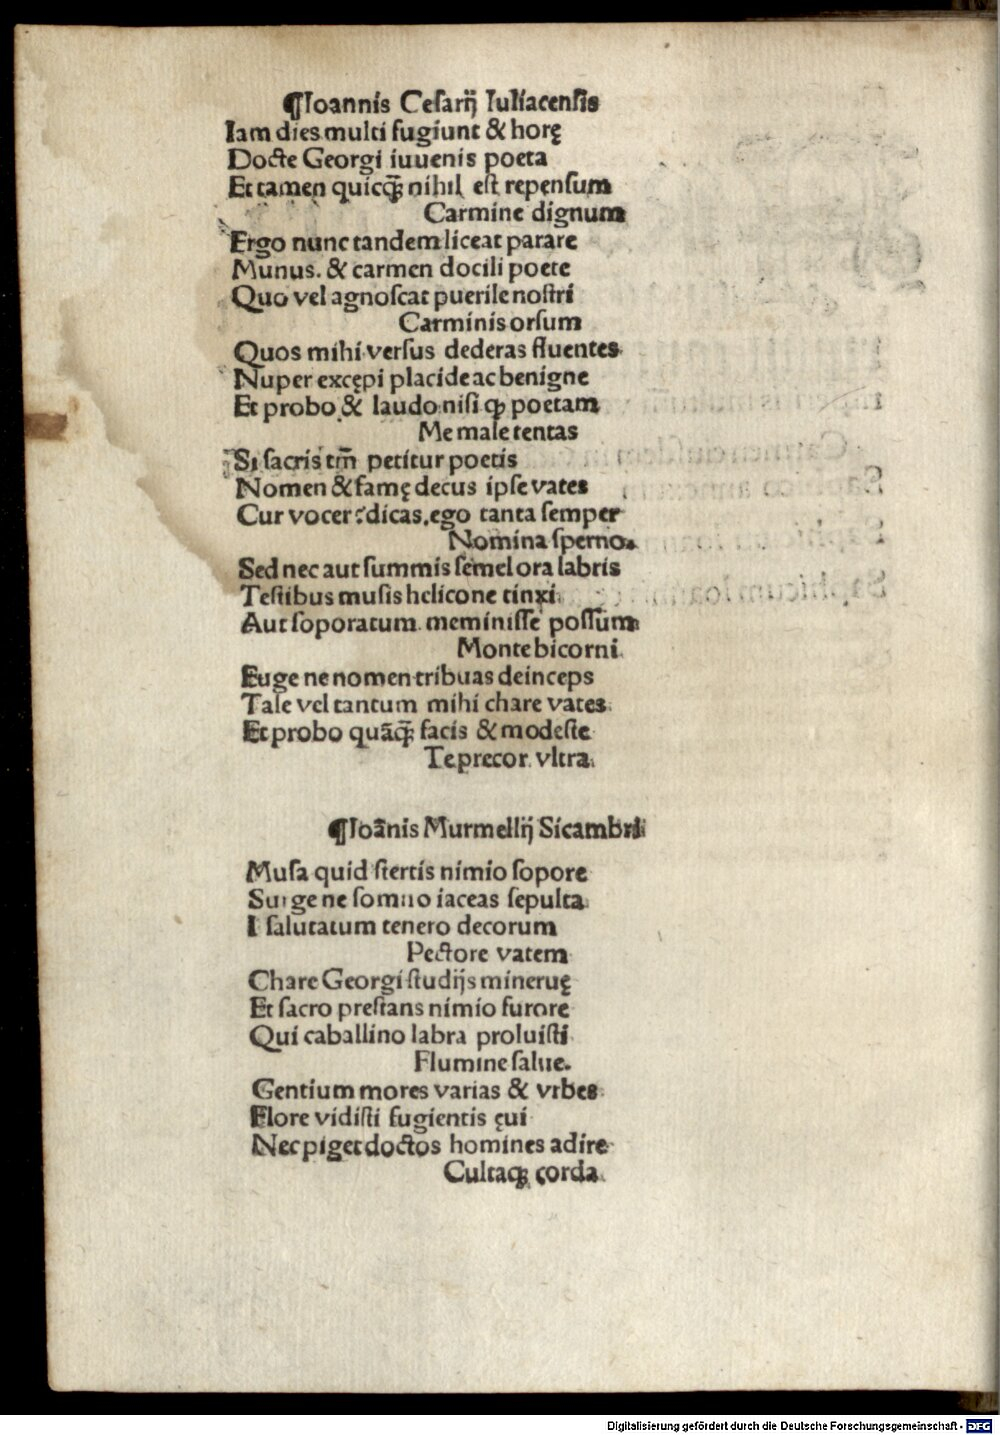 ¶Ioannis Cesarij Iuliacensis
Iam dies multi fugiunt & horę
Docte Georgi iuuenis poeta
Et tamen quicq̄ꝫ nihil est repensum
Carmine dignum
Ergo nunc tandem liceat parare
Munus. & carmen docili poete
Quo vel agnoscat puerile nostri
Carminis orsum
Quos mihi versus dederas fluentes
Nuper excępi placide ac benigne
Et probo & laudo nisi qꝫ poetam
Me male tentas
Si sacris tm̄ petitur poetis
Nomen & famę decus ipse vates
Cur vocer? dicas. ego tanta semper
Nomina sperno.
Sed nec aut summis semel ora labris
Testibus musis helicone tinxi
Aut soporatum meminisse possum
Monte bicorni
Euge ne nomen tribuas deinceps
Tale vel tantum mihi chare vates
Et probo quāq̄ꝫ facis & modeste
Te precor vltra.
¶Ioānis Murmellij Sicambri
Musa quid stertis nimio sopore
Surge ne somno iaceas sepulta
I salutatum tenero decorum
Pectore vatem
Chare Georgi studijs mineruę
Et sacro prestans nimio furore
Qui caballino labra proluisti
Flumine salue.
Gentium mores varias & vrbes
Flore vidisti fugientis ęui
Nec piget doctos homines adire
Cultaqꝫ corda
Digitalisierung gefördert durch die Deutsche Forschungsgemeinschaft - DFG